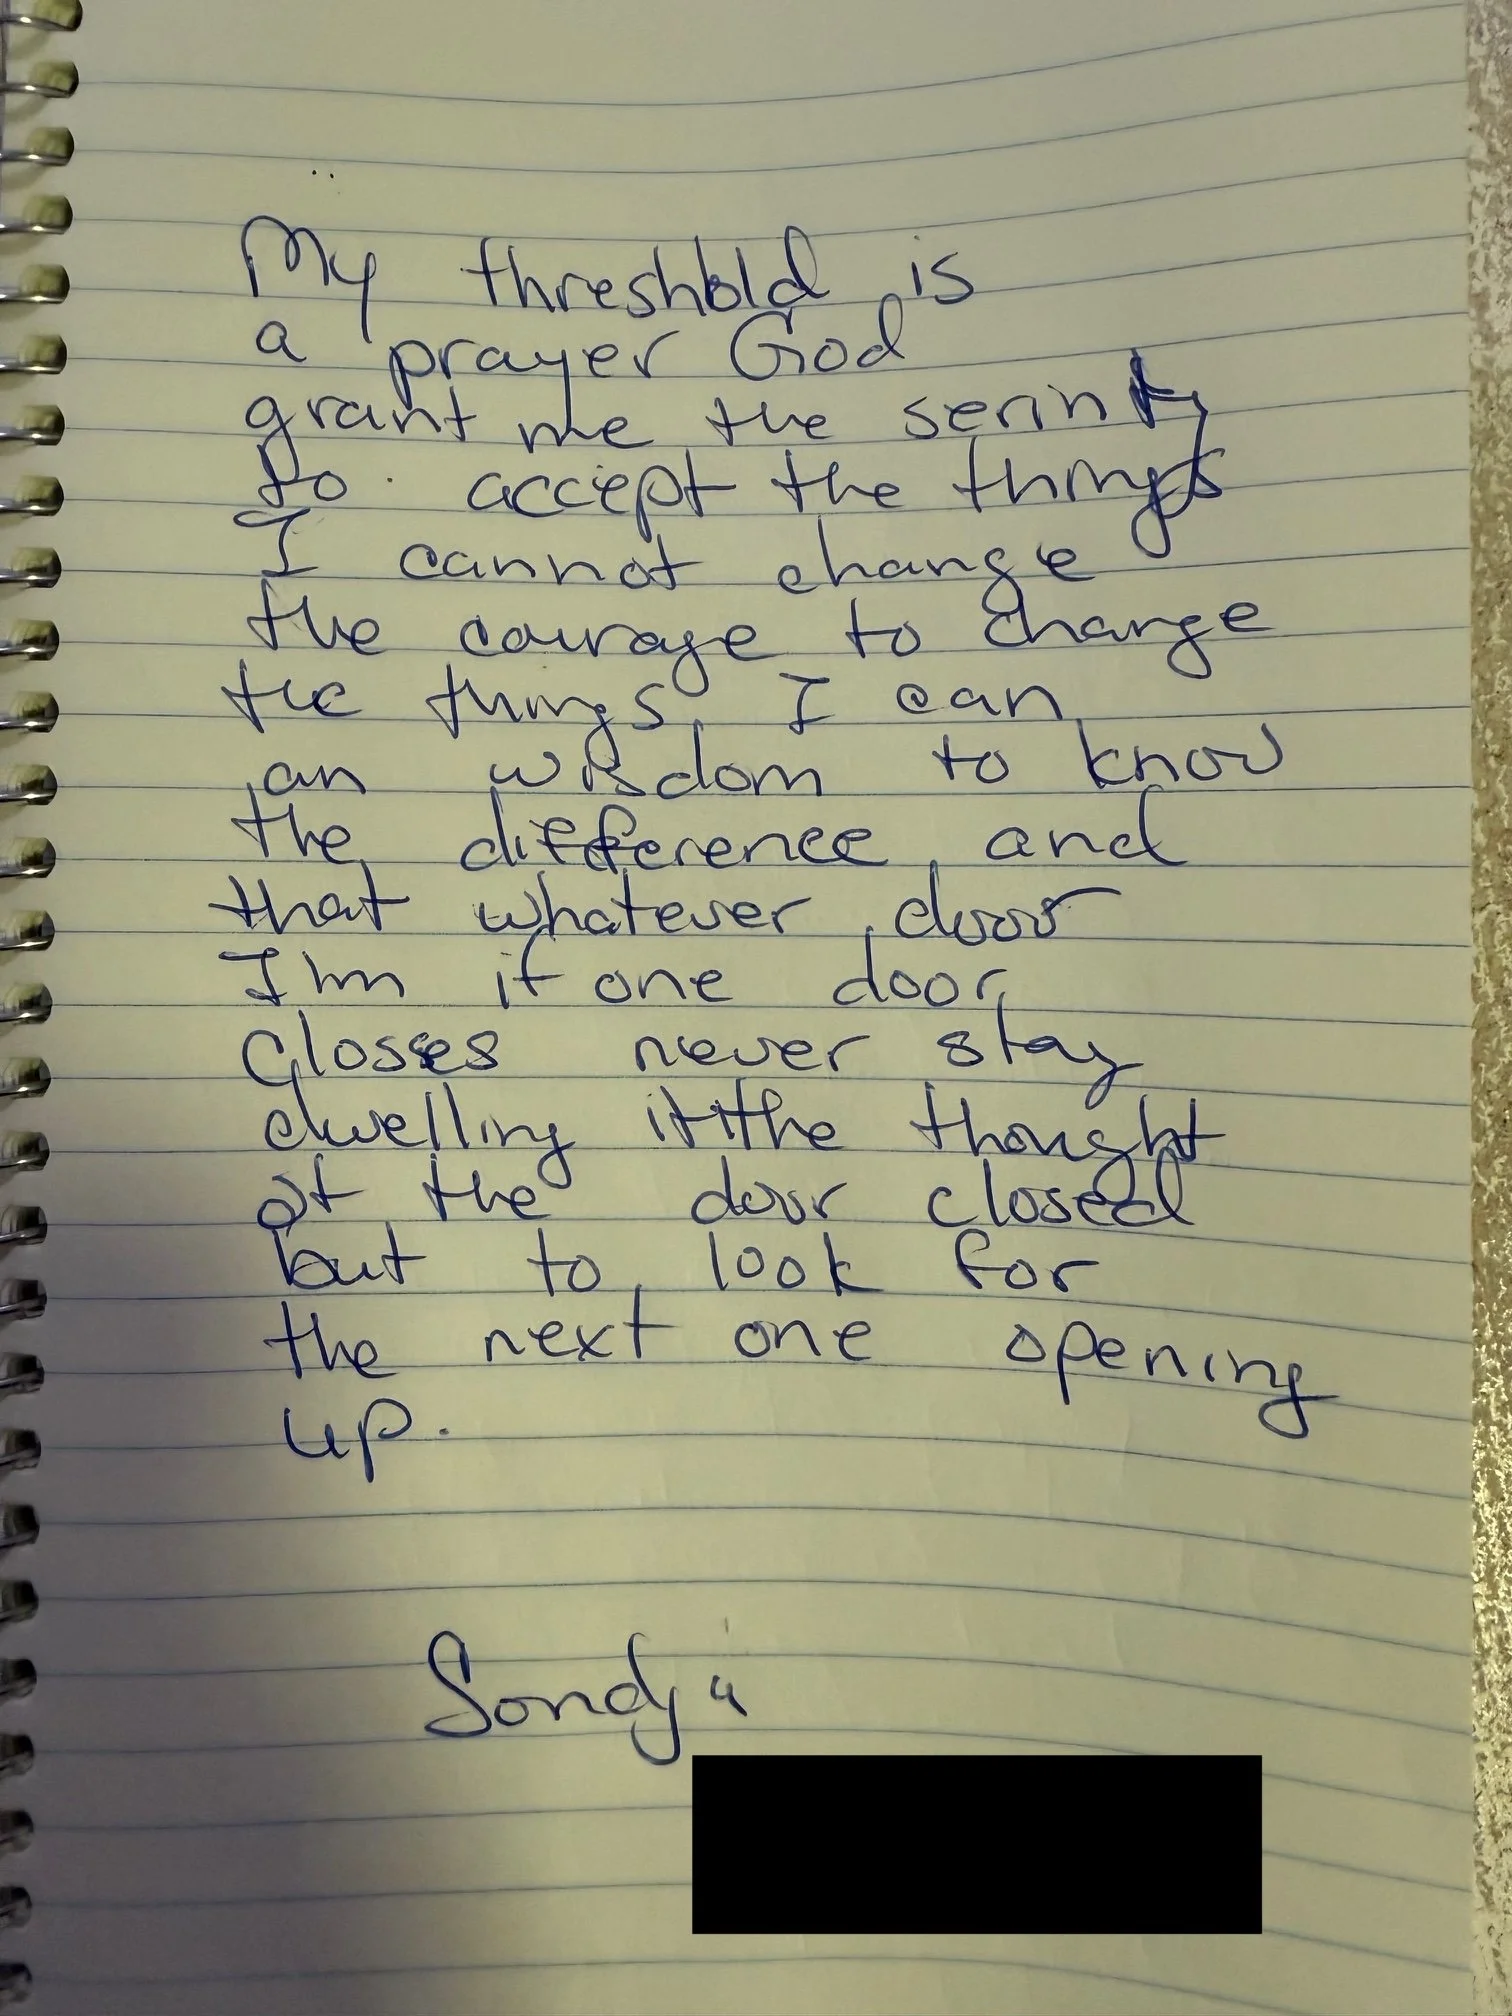 My threshold is
a prayer God
grant me the serinty
to accept the things
I cannot change
the courage to change
the things I can
an wisdom to know
the difference and
that whatever door
I'm if one door
closes never stay
dwelling the thought
of the door closed
but to look for
the next one opening
up.
Sondja